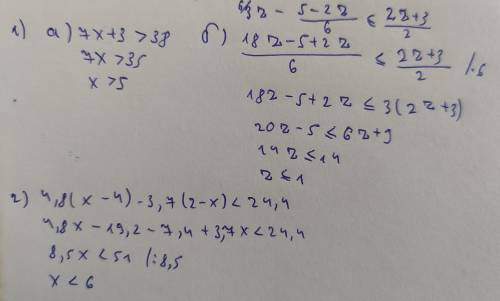 1) a) 7x+3>38
7x>35
x>5
б) 3z - (5-2z)/6 ≤ (2z+3)/2
(18z-5+2z)/6 ≤ (2z+3)/2 /·6
18z-5+2z ≤ 3(2z+3)
20z-5 ≤ 6z+9
14z ≤ 14
z ≤ 1
2) 4,8(x-4)-3,7(2-x)<24,4
4,8x-19,2-7,4+3,7x<24,4
8,5x<51 /:8,5
x<6